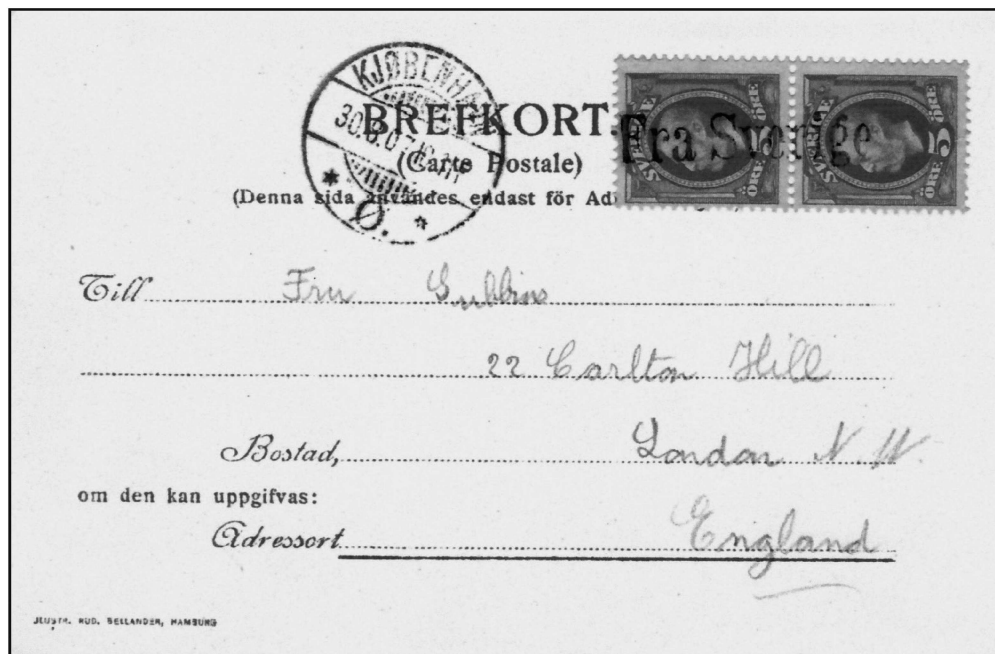 KJØBENHAVN
30.8.07
Ø.
BREFKORT
(Carte Postale)
(Denna sida användes endast för
Fra Sverige
SVERIGE 5 ÖRE ÖRE
SVERIGE 5 ÖRE ÖRE
Till Fru Gubbins
22 Carlton Hill
Bostad, London N.W.
om den kan uppgifvas:
Adressort England
JLUSTR. RUD. BELLANDER, HAMBURG